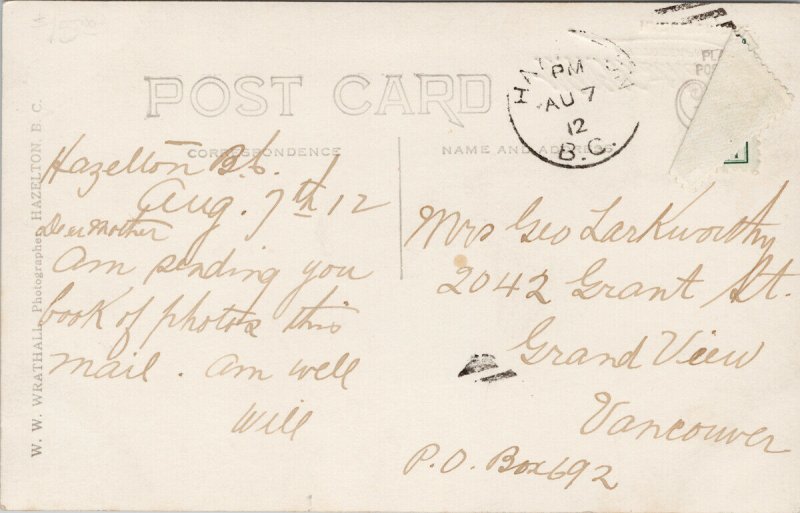 POST CARD
CORRESPONDENCE
NAME AND ADDRESS
PM
AU 7
12
B.C.
Hazelton B.C.
Aug. 7th /12
Dear Mother
Am sending you
book of photos this
mail. Am well
Will
Mrs Geo Larkworthy
2042 Grant St.
Grand View
Vancouver
P.O. Box 692
W. W. WRATHALL, Photographer, HAZELTON, B. C.